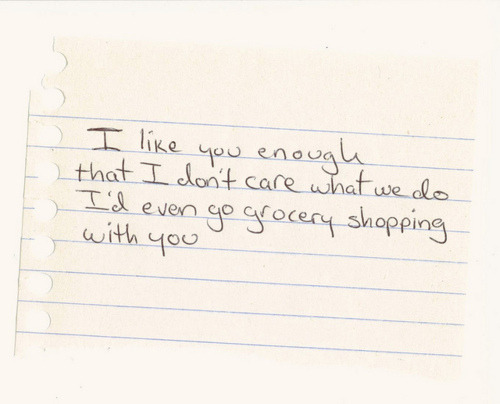 I like you enough
that I don't care what we do
I'd even go grocery shopping
with you